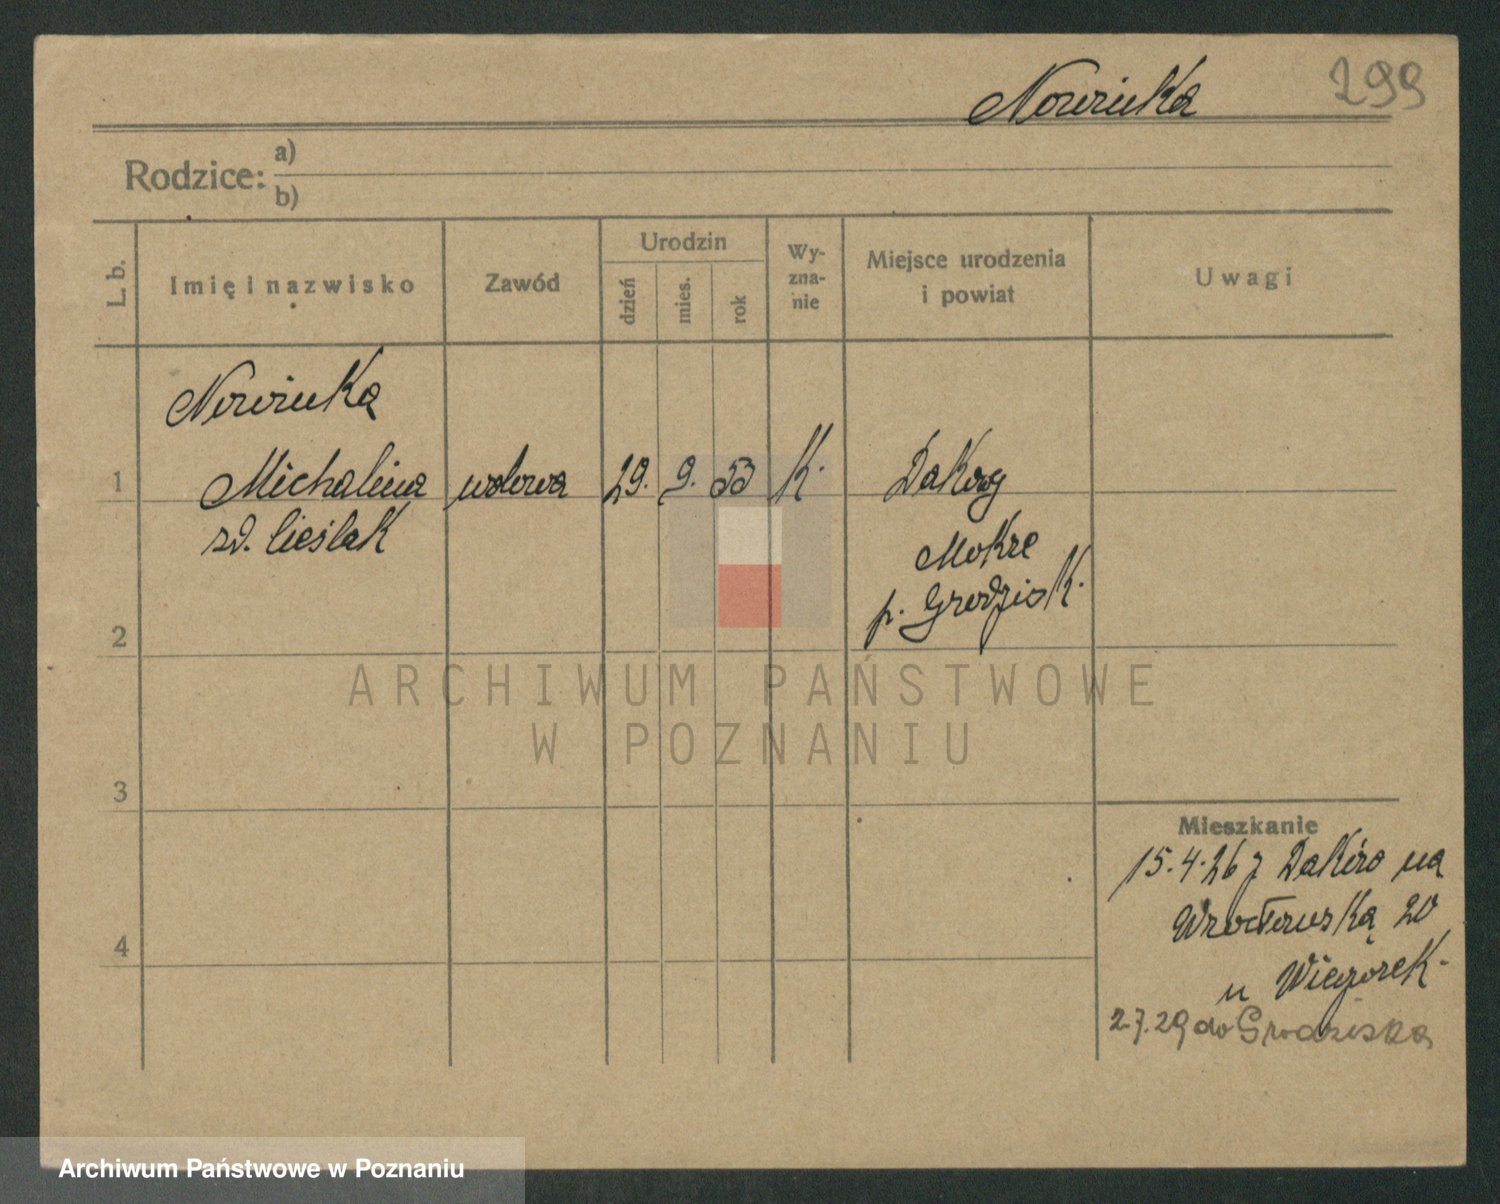 Nowicka
299
Rodzice:
a)
b)
L. b.
Imię i nazwisko
Zawód
Urodzin
dzień
mies.
rok
Wy-
zna-
nie
Miejsce urodzenia
i powiat
Uwagi
Nowicka
1 Michalina wdowa 29. 9. 53 K. Dakowy
zd. Cieślak
Mokre
p. Grodzisk.
2
3
4
Mieszkanie
15.4.26 z Daków na
Wrocławską 20
u Wieczorek.
2.7.29 do Grodziska
ARCHIWUM PAŃSTWOWE
W POZNANIU
Archiwum Państwowe w Poznaniu